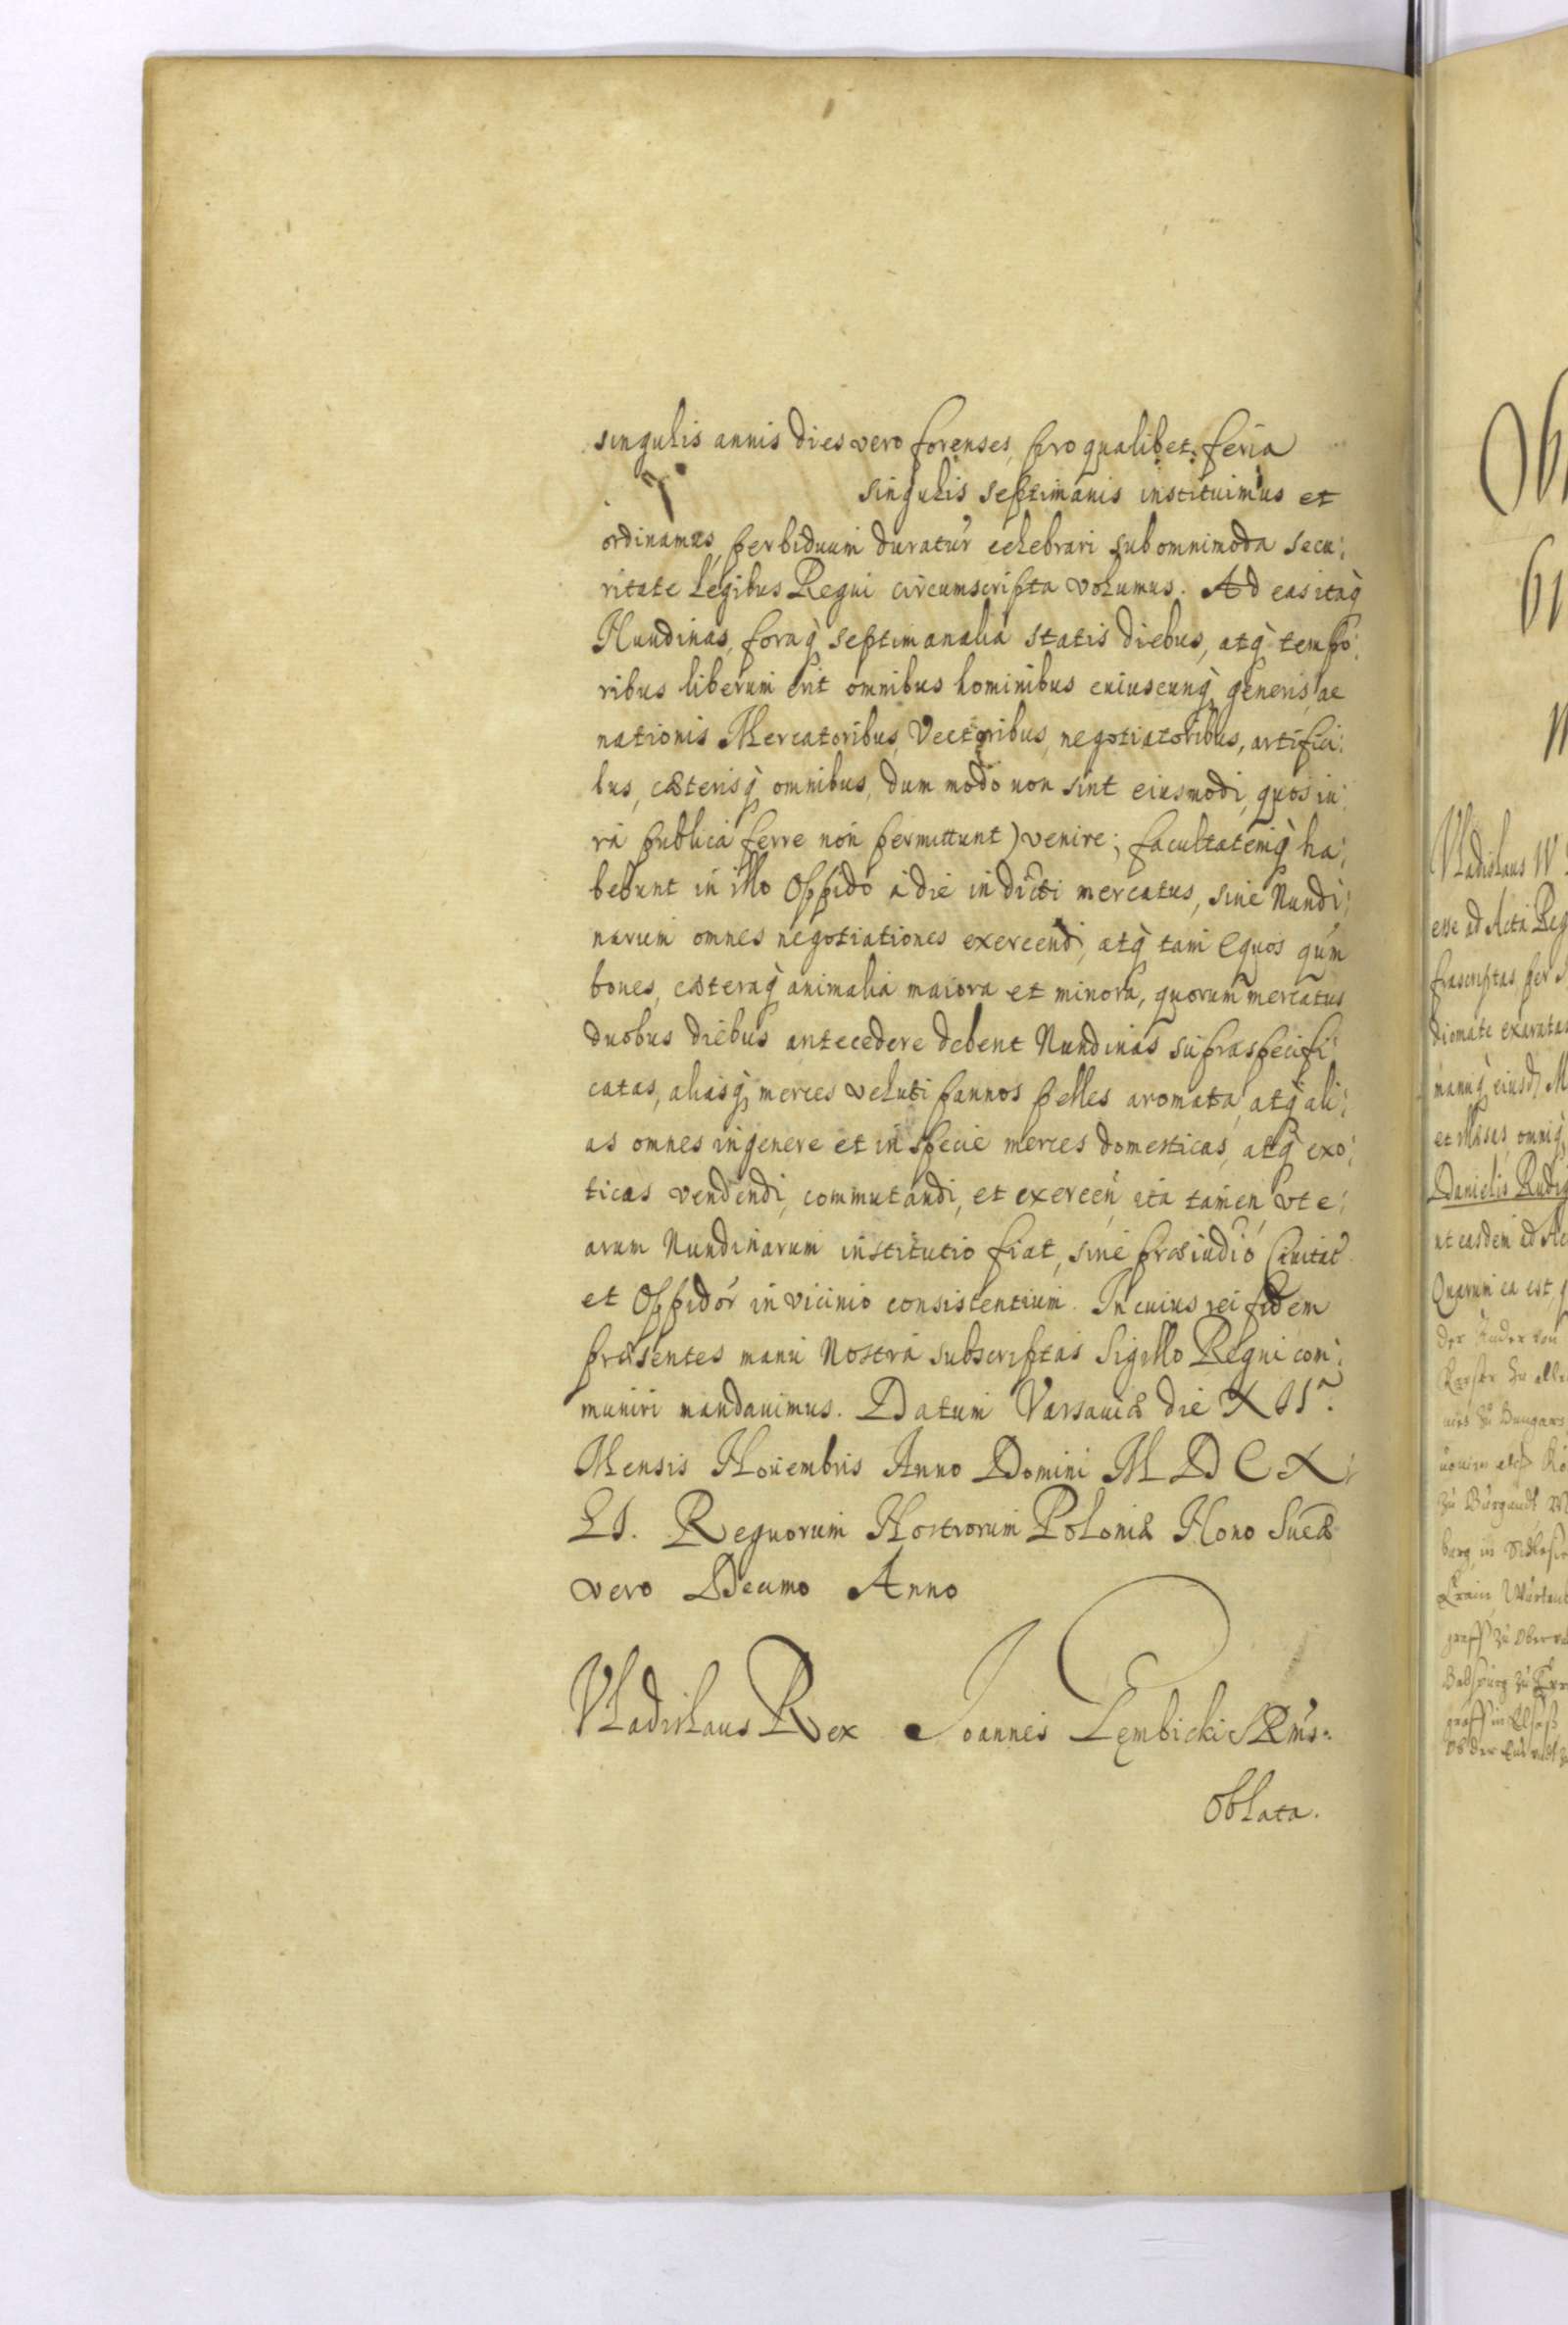 singulis annis dies vero forenses, pro qualibet feria
singulis septimanis instituimus et
ordinamus, per biduum duratur celebrari sub omnimoda secu:
ritate legibus Regni circumscripta volumus. Ad eas itaq
Nundinas, foraq septimanalia statis diebus, atq tempo:
ribus liberum erit omnibus hominibus cuiuscunq generis, ac
nationis Mercatoribus, Vectoribus, negotiatoribus, artifici:
bus, cæterisq omnibus, dum modo non sint eiusmodi, quos iu:
ra publica ferre non permittunt) venire; facultatemq ha:
bebunt in illo Oppido à die indicti mercatus, sive Nundi:
narum omnes negotiationes exercendi, atq tam equos qum
boues, cæteraq animalia maiora et minora, quorum mercatus
duobus diebus antecedere debent Nundinas supraspecifi:
catas, aliasq merces veluti pannos pelles aromata, atq ali:
as omnes in genere et in specie merces domesticas, atq exo:
ticas vendendi, commutandi, et exercen ita tamen vt e:
arum Nundinarum institutio fiat, sine præiudio Ciuitat
et Oppidor in vicinio consistentium. In cuius rei fidem
præsentes manu Nostra subscriptas Sigillo Regni com:
muniri mandauimus. Datum Varsauiæ die
Mensis Nouembris Anno Domini M D C X
LI. Regnorum Nostrorum Poloniæ Nono Sueæ
vero Decimo Anno
Vladislaus Rex Joannes Lembicki
Oblata.
Vladislaus IV
esse ad Acta Reg
frascriptas per
diomate exaratas
manuq eiusd M
et illæsas, omniq
Danielis
ut easdem ad Ac
Quarum ea est,